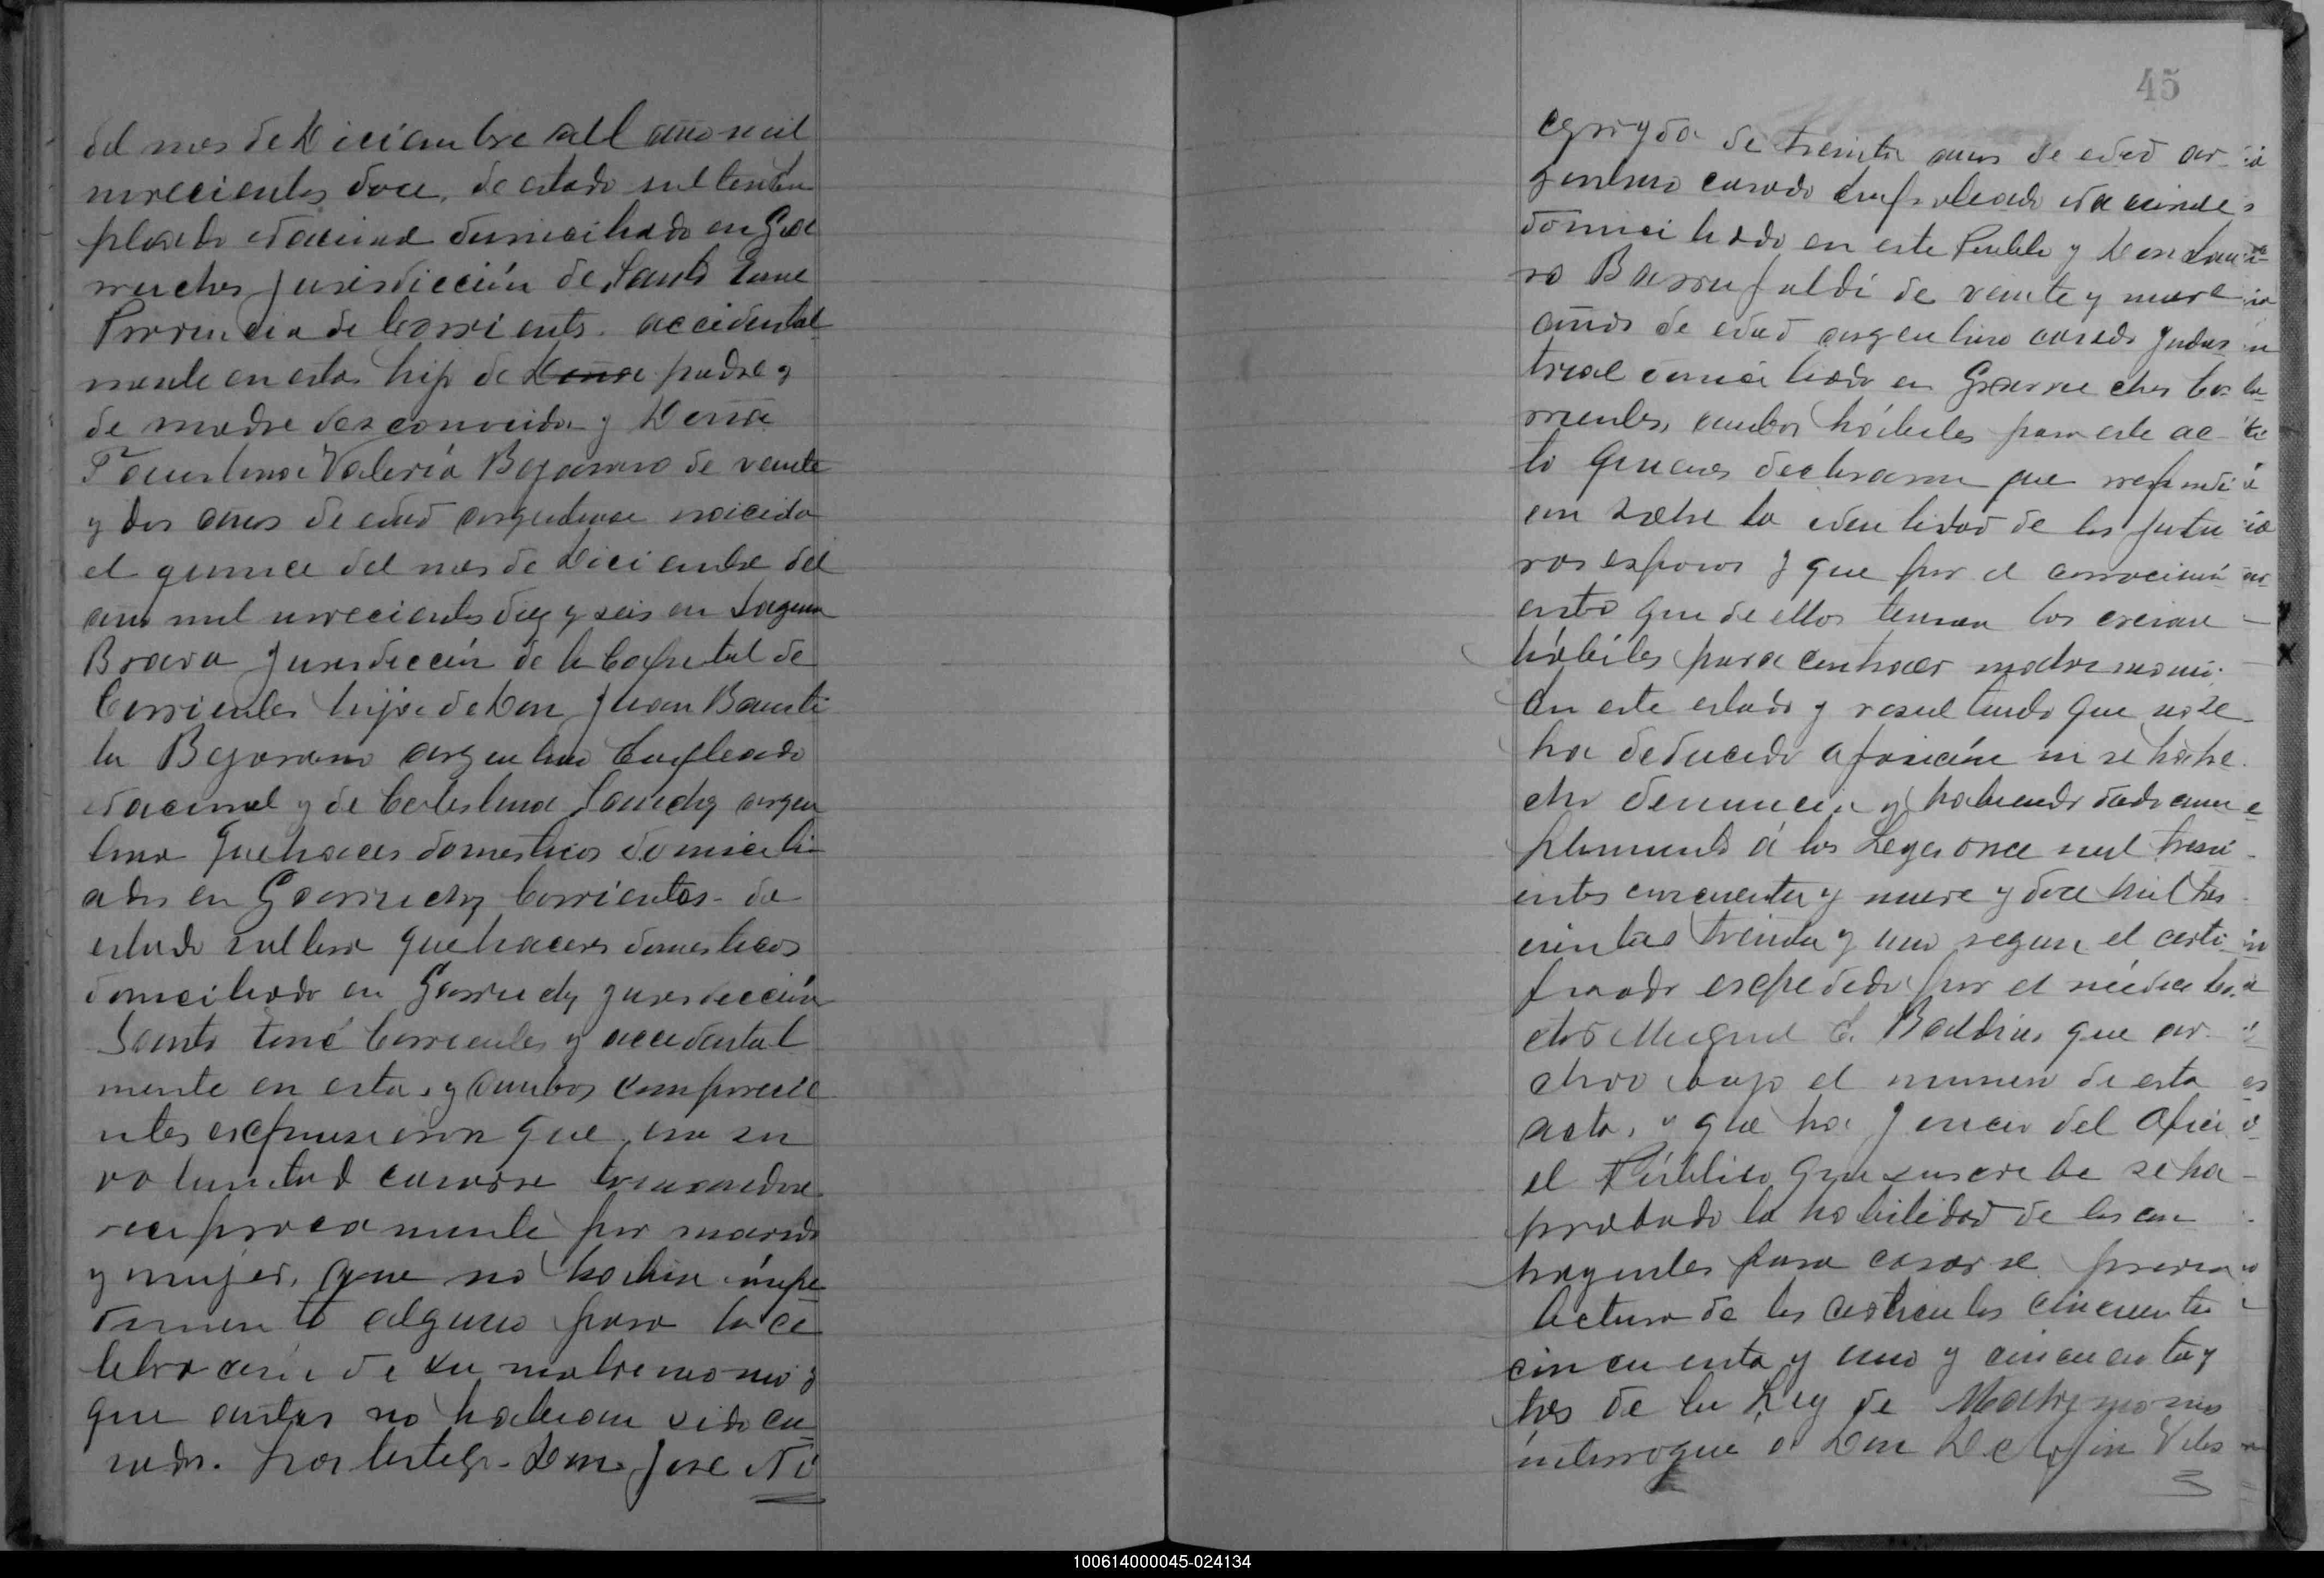 del mes de Diciembre del año mil
novecientos doce, de estado soltero em
pleado nacional domiciliado en Ga
rruchos jurisdicción de Santo Tomé
Provincia de Corrientes. accidental
mente en esta hijo de Doña padre y
de madre desconocida y Doña
Faustina Valeria Bejarano de veinte
y dos años de edad argentina nacida
el quince del mes de Diciembre del
año mil novecientos diez y seis en Laguna
Brava jurisdicción de la Capital de
Corrientes hija de Don Juan Bauti
ta Bejarano argentino Empleado
nacional y de Celestina Sanchez argen
tina quehaceres domesticos domicili
ados en Garruchos Corrientes - de
estado soltera quehaceres domesticos
domiciliada en Garruchos jurisdicción
Santo tomé Corrientes y accidental
mente en esta, y ambos comparecie
ntes expusieron que, era su
voluntad casarse tomandose
reciprocamente por marido
y mujer, que no habia impe
dimento alguno para la ce
lebracion de su matrimonio y
que antes no habian sido ca
sados. Por testigo - Don Jose Ni
45
de treinta años de edad ar
gentino casado Empleado nacional
domiciliado en este Pueblo y Don
ro Barrufaldi de veinte y nueve
años de edad argentino casado Indus
trial domiciliado en Garruchos Co
rrientes, ambos hábiles para este ac
to Quienes declararon que respondi
an sobre la identidad de los futu
ros esposos y que por el conocimi
ento que de ellos tenian los creian
hábiles para contraer matrimonio.
En este estado y resultando que no se
ha deducido oposición ni se ha he
cho denuncia y habiendo dado cum
plimiento á las Leyes once mil tresci
entos cincuenta y nueve y doce mil tres
cientos treinta y uno segun el certi
ficado expedido por el médico Do
ctor Miguel C. que ar
chivo bajo el numero de esta
acta, y que ha juicio del Ofici
al Público que suscribe se ha
probado la habilidad de los con
trayentes para casarse previa
lectura de los articulos cincuenta
cincuenta y uno y cincuenta y
tres de la Ley de Matrimonio
interrogue a Don Delofin Veles